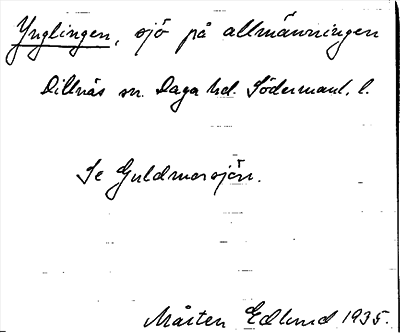 Ynglingen, sjö på allmänningen
Dillnäs sn. Daga hd. Södermanl. l.
Se Guldmorsjön.
Mårten Edlund 1935.